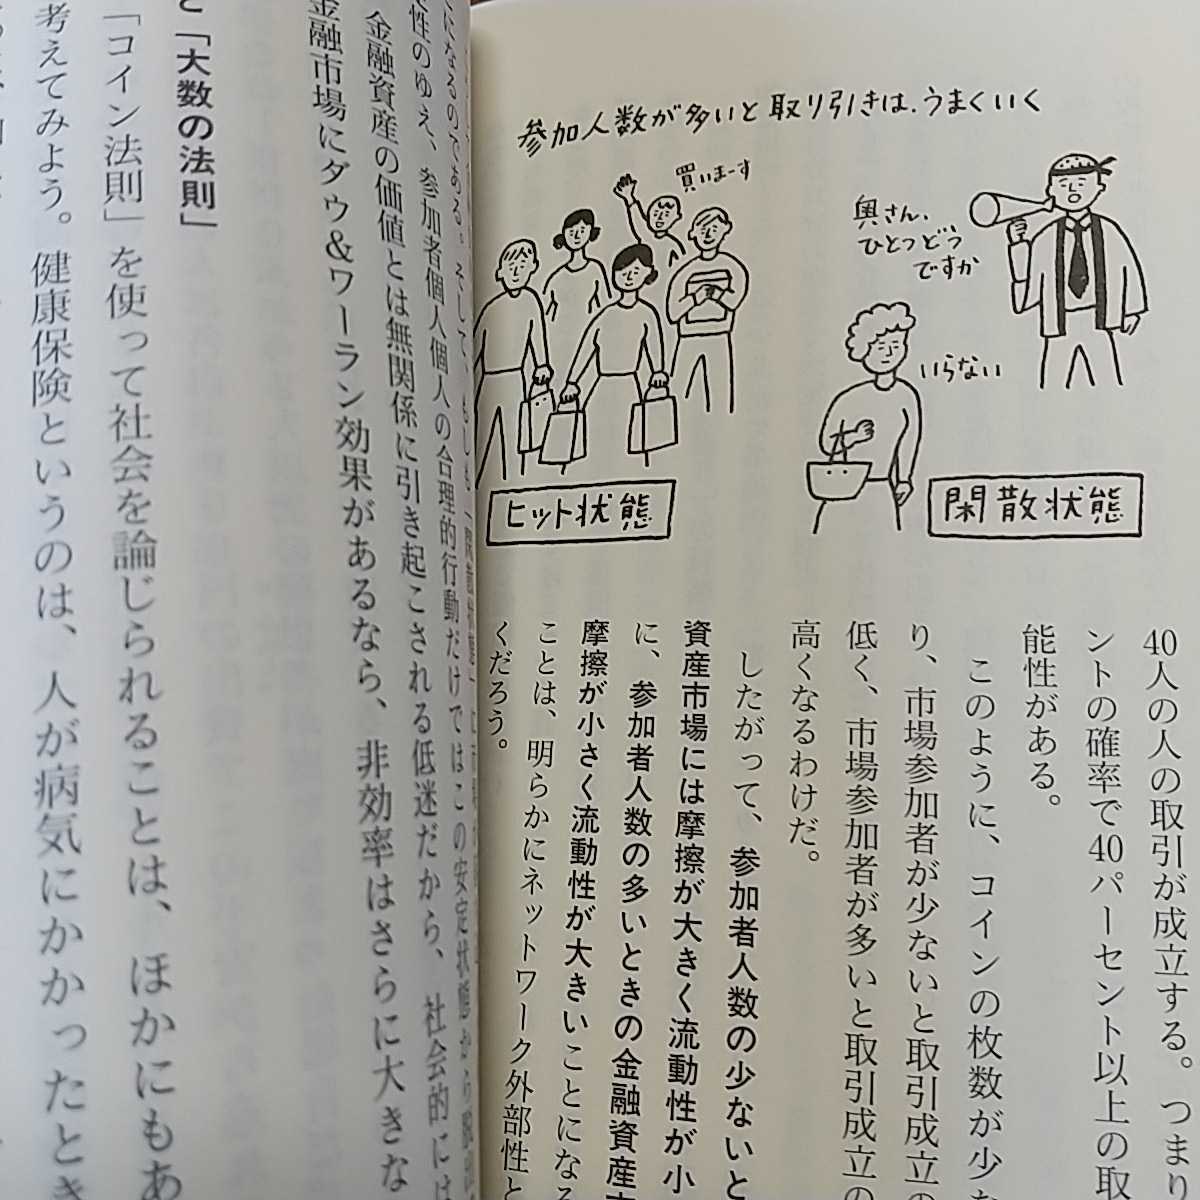 参加人数が多いと取り引きは、うまくいく
奥さん、
ひとつどう
ですか
いらない
閑散状態
買いまーす
ヒット状態
40人の人の取引が成立する。つまり
ントの確率で40パーセント以上の取
能性がある。
このように、コインの枚数が少な
り、市場参加者が少ないと取引成立の
低く、市場参加者が多いと取引成立の
高くなるわけだ。
したがって、参加者人数の少ないと
資産市場には摩擦が大きく流動性が小
に、参加者人数の多いときの金融資産市
摩擦が小さく流動性が大きいことになる
ことは、明らかにネットワーク外部性と
くだろう。
になるのである。そして、もしも
性のゆえ、参加者個人個人の合理的行動だけではこの安定状態から脱
金融資産の価値とは無関係に引き起こされる低迷だから、社会的には
金融市場にダウ&ワーラン効果があるなら、非効率はさらに大きな
と「大数の法則」
「コイン法則」を使って社会を論じられることは、ほかにもあ
考えてみよう。健康保険というのは、人が病気にかかったとき